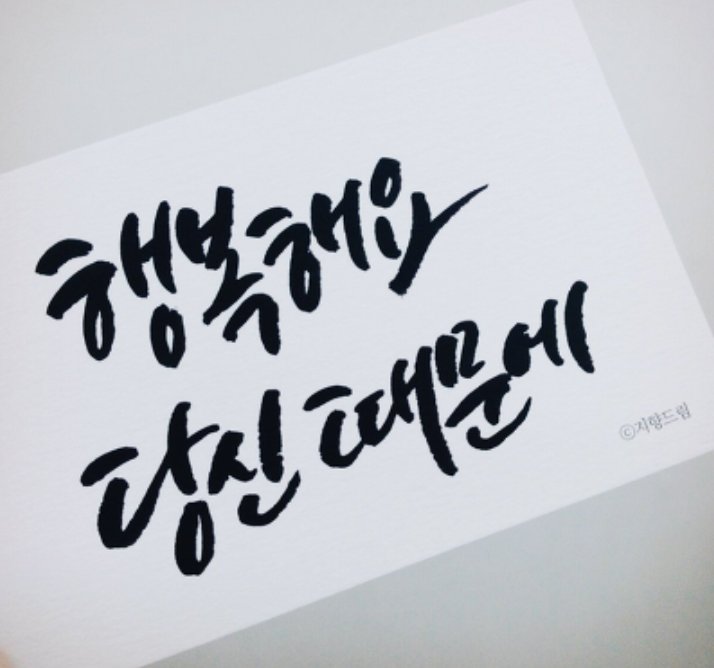 행복해요
당신 때문에
ⓒ지향드림